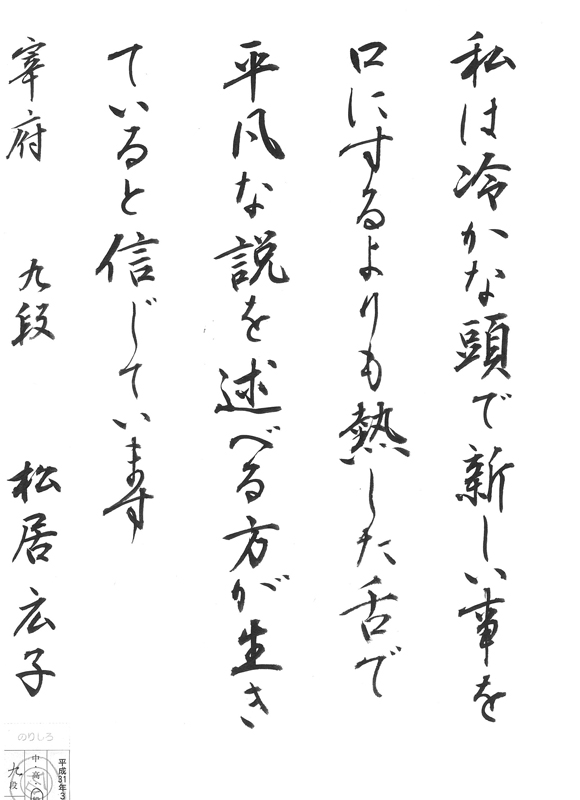 私は冷かな頭で新しい事を
口にするよりも熱した舌で
平凡な説を述べる方が生き
ていると信じています
宰府 九段 松居広子
のりしろ
平成31年3
中・高・
九段